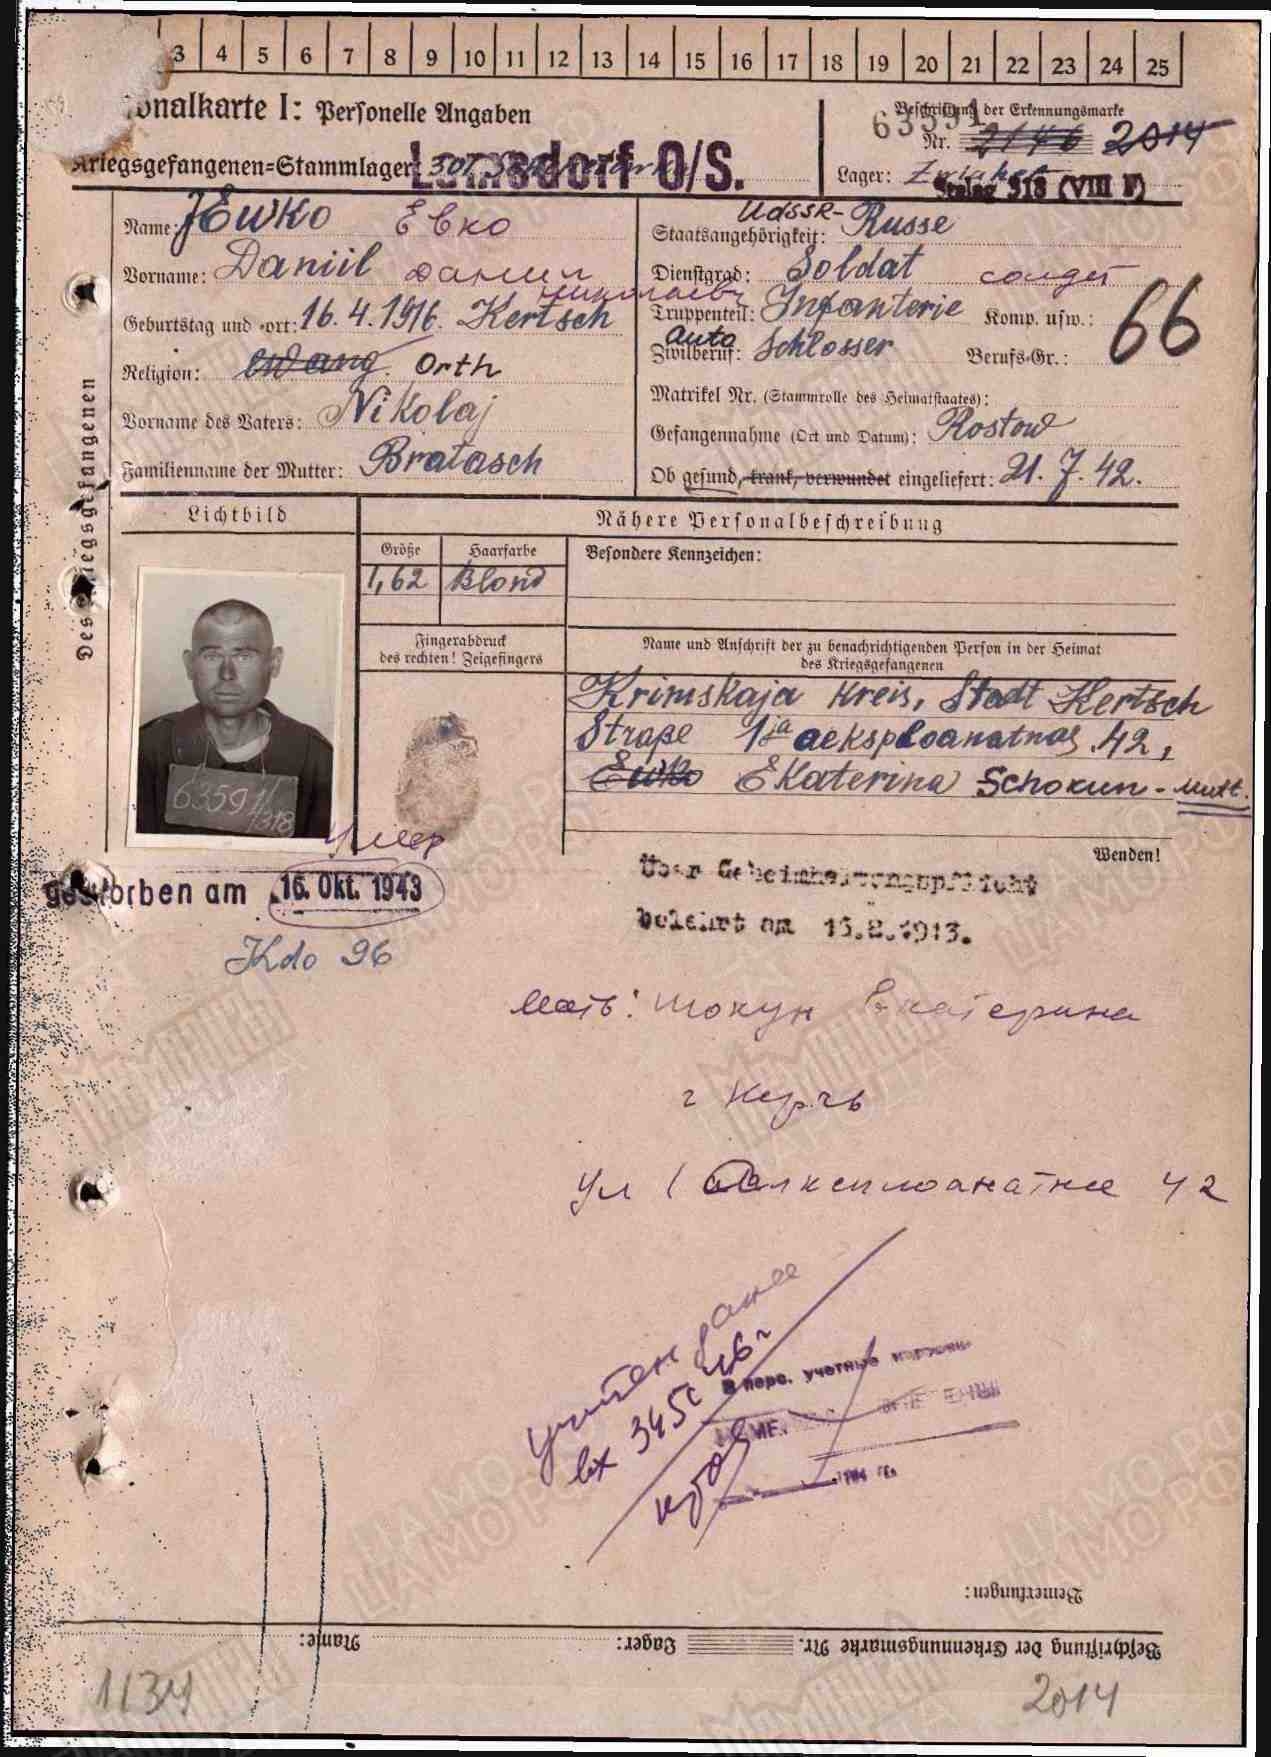 3 4 5 6 7 8 9 10 11 12 13 14 15 16 17 18 19 20 21 22 23 24 25
onalkarte I: Personelle Angaben
Kriegsgefangenen=Stammlager:
Lamsdorf O/S.
Beschriftung der Erkennungsmarke
63591
Nr. 2146 2014
Lager:
Stalag 318 (VIII F)
Des Kriegsgefangenen
Name: JEwko Евко
Vorname: Daniil Данил
Николаевич
Geburtstag und -ort: 16.4.1916. Kertsch
Religion: evang. Orth
Vorname des Vaters: Nikolaj
Familienname der Mutter: Bratasch
UdSSR-
Staatsangehörigkeit: Russe
Dienstgrad: Soldat солдат
Truppenteil: Infanterie Komp. usw.:
66
Auto
Zivilberuf: Schlosser Berufs-Gr.:
Matrikel Nr. (Stammrolle des Heimatstaates):
Gefangennahme (Ort und Datum): Rostow
Ob gesund, krank, verwundet eingeliefert: 21.7.42.
Lichtbild
Nähere Personalbeschreibung
Größe Haarfarbe Besondere Kennzeichen:
1,62 Blond
Fingerabdruck
des rechten! Zeigefingers
Name und Anschrift der zu benachrichtigenden Person in der Heimat
des Kriegsgefangenen
Krimskaja Kreis, Stadt Kertsch
Straße 1ja aeksploanatnas 42,
Ewko Ekaterina Schokun - Mutt.
63591/318
Wenden!
умер
gestorben am 16. Okt. 1943
Kdo 96
Über Geheimhaltungspflicht
belehrt am
Мать: Шокун Екатерина
г Керчь
ул 1 42
учтен ранее
вх 345с 46г
В перс. учетные
194 г.
Bemerkungen:
Beschriftung der Erkennungsmarke Nr. Lager: Name:
1134
2014